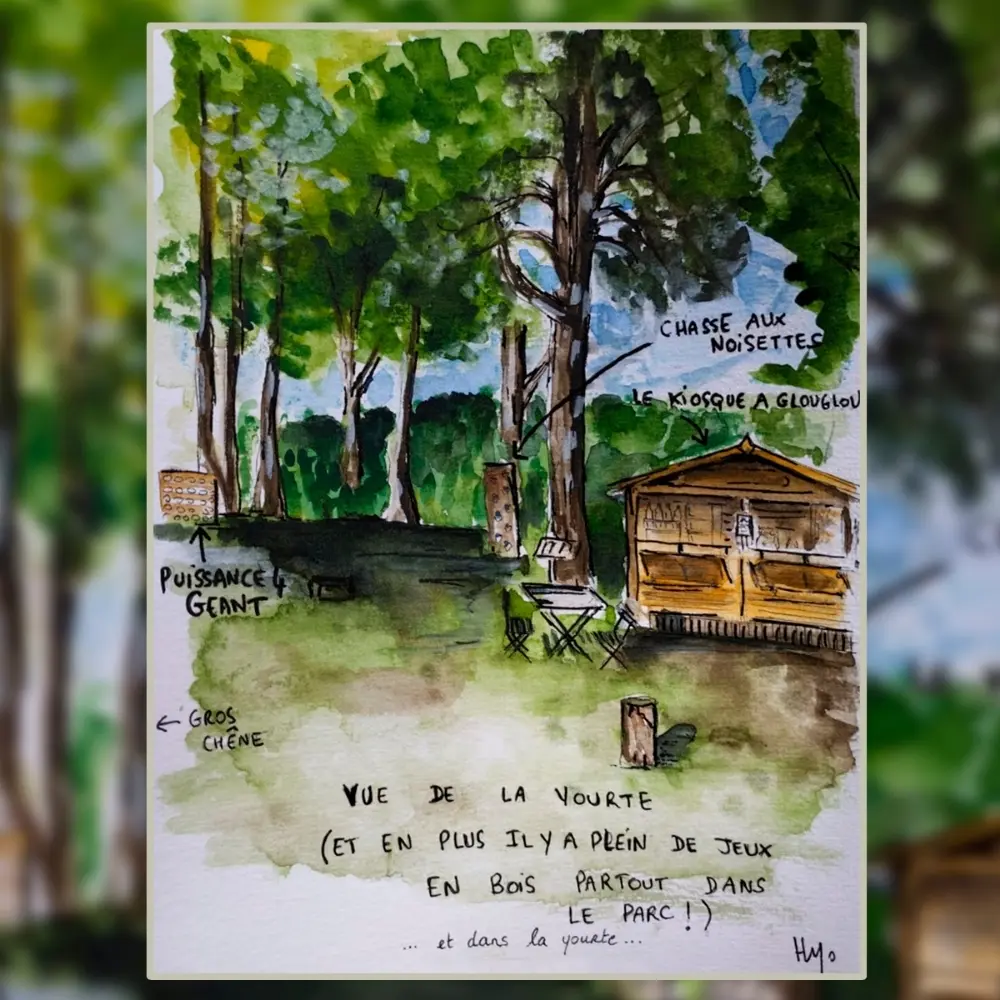 CHASSE AUX
NOISETTES
LE KIOSQUE A GLOUGLOU
PUISSANCE 4
GEANT
← GROS
CHÊNE
VUE DE LA YOURTE
(ET EN PLUS IL Y A PLEIN DE JEUX
EN BOIS PARTOUT DANS
LE PARC !)
... et dans la yourte ...
Hyo